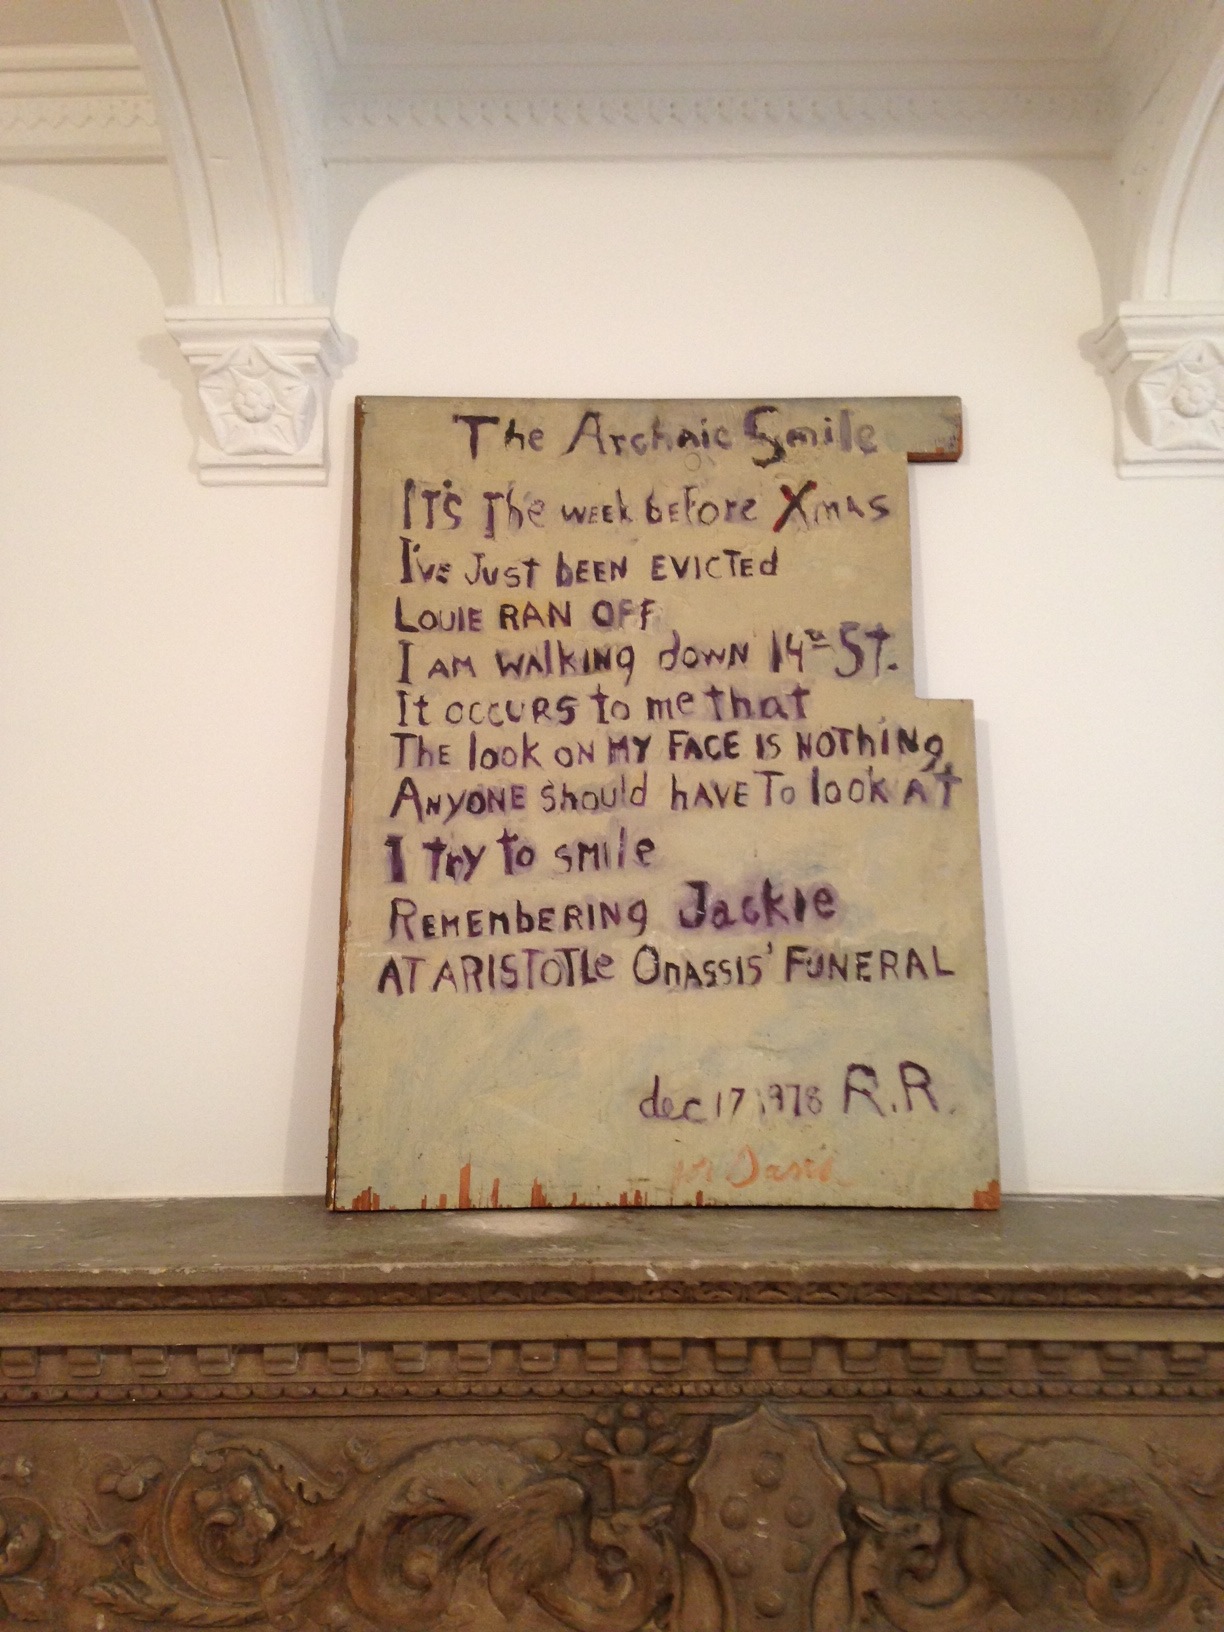 The Archaic Smile
IT'S The WEEK beFore Xmas
I'VE JUST bEEN EVICTEd
LOUIE RAN OFF
I AM WAlKING doWN 14th ST.
It OCCURS to me that
THe look ON MY FACE IS NOThiNg
ANYONE Should hAVE To look AT
I Try to SMIle
REMEMbERING Jackie
AT ARISTOTLe OnASSIS' FUNERAL
dec 17 1978 R.R.